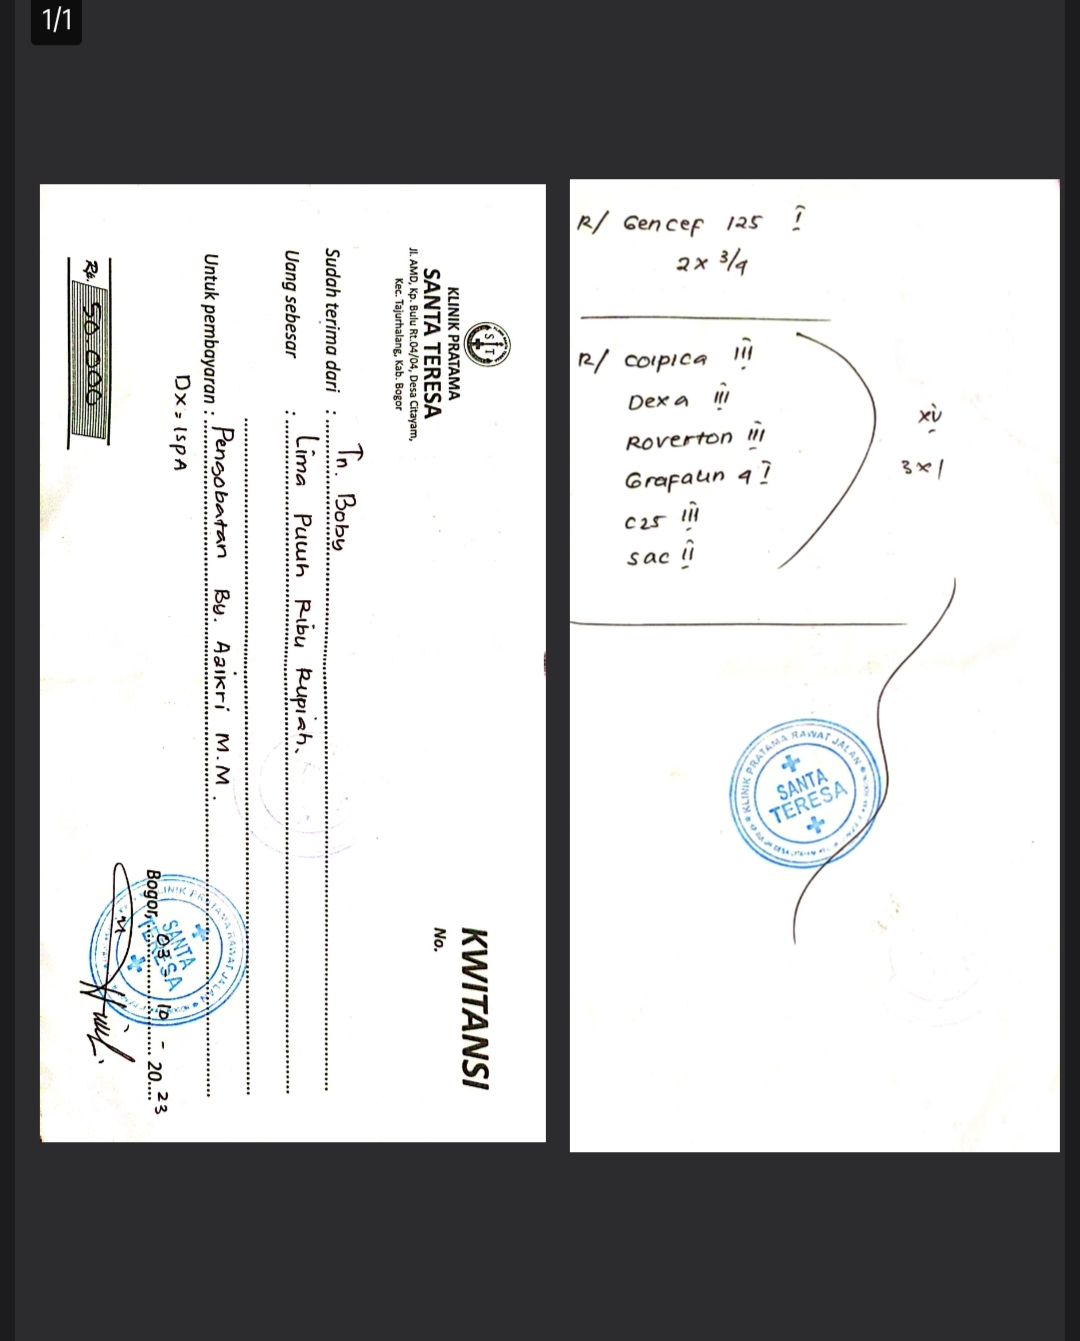 1/1
KLINIK PRATAMA
SANTA TERESA
Jl. AMD, Kp. Bulu Rt.04/04, Desa Citayam,
Kec. Tajurhalang, Kab. Bogor
KWITANSI
No.
Sudah terima dari : Tn. Boby
Uang sebesar : Lima Puluh Ribu Rupiah.
Untuk pembayaran : Pengobatan By. Azikri M.M.
Dx = ISPA
Bogor, 03 - 10 - 2023
Rp. 50.000
KLINIK PRATAMA RAWAT JALAN
SANTA
TERESA
R/ Gencef 125 I
2x 3/4
R/ Colpica III
Dexa III
Roverton III
Grafalin 4 I
C25 III
sac II
XV
3x1
KLINIK PRATAMA RAWAT JALAN
SANTA
TERESA